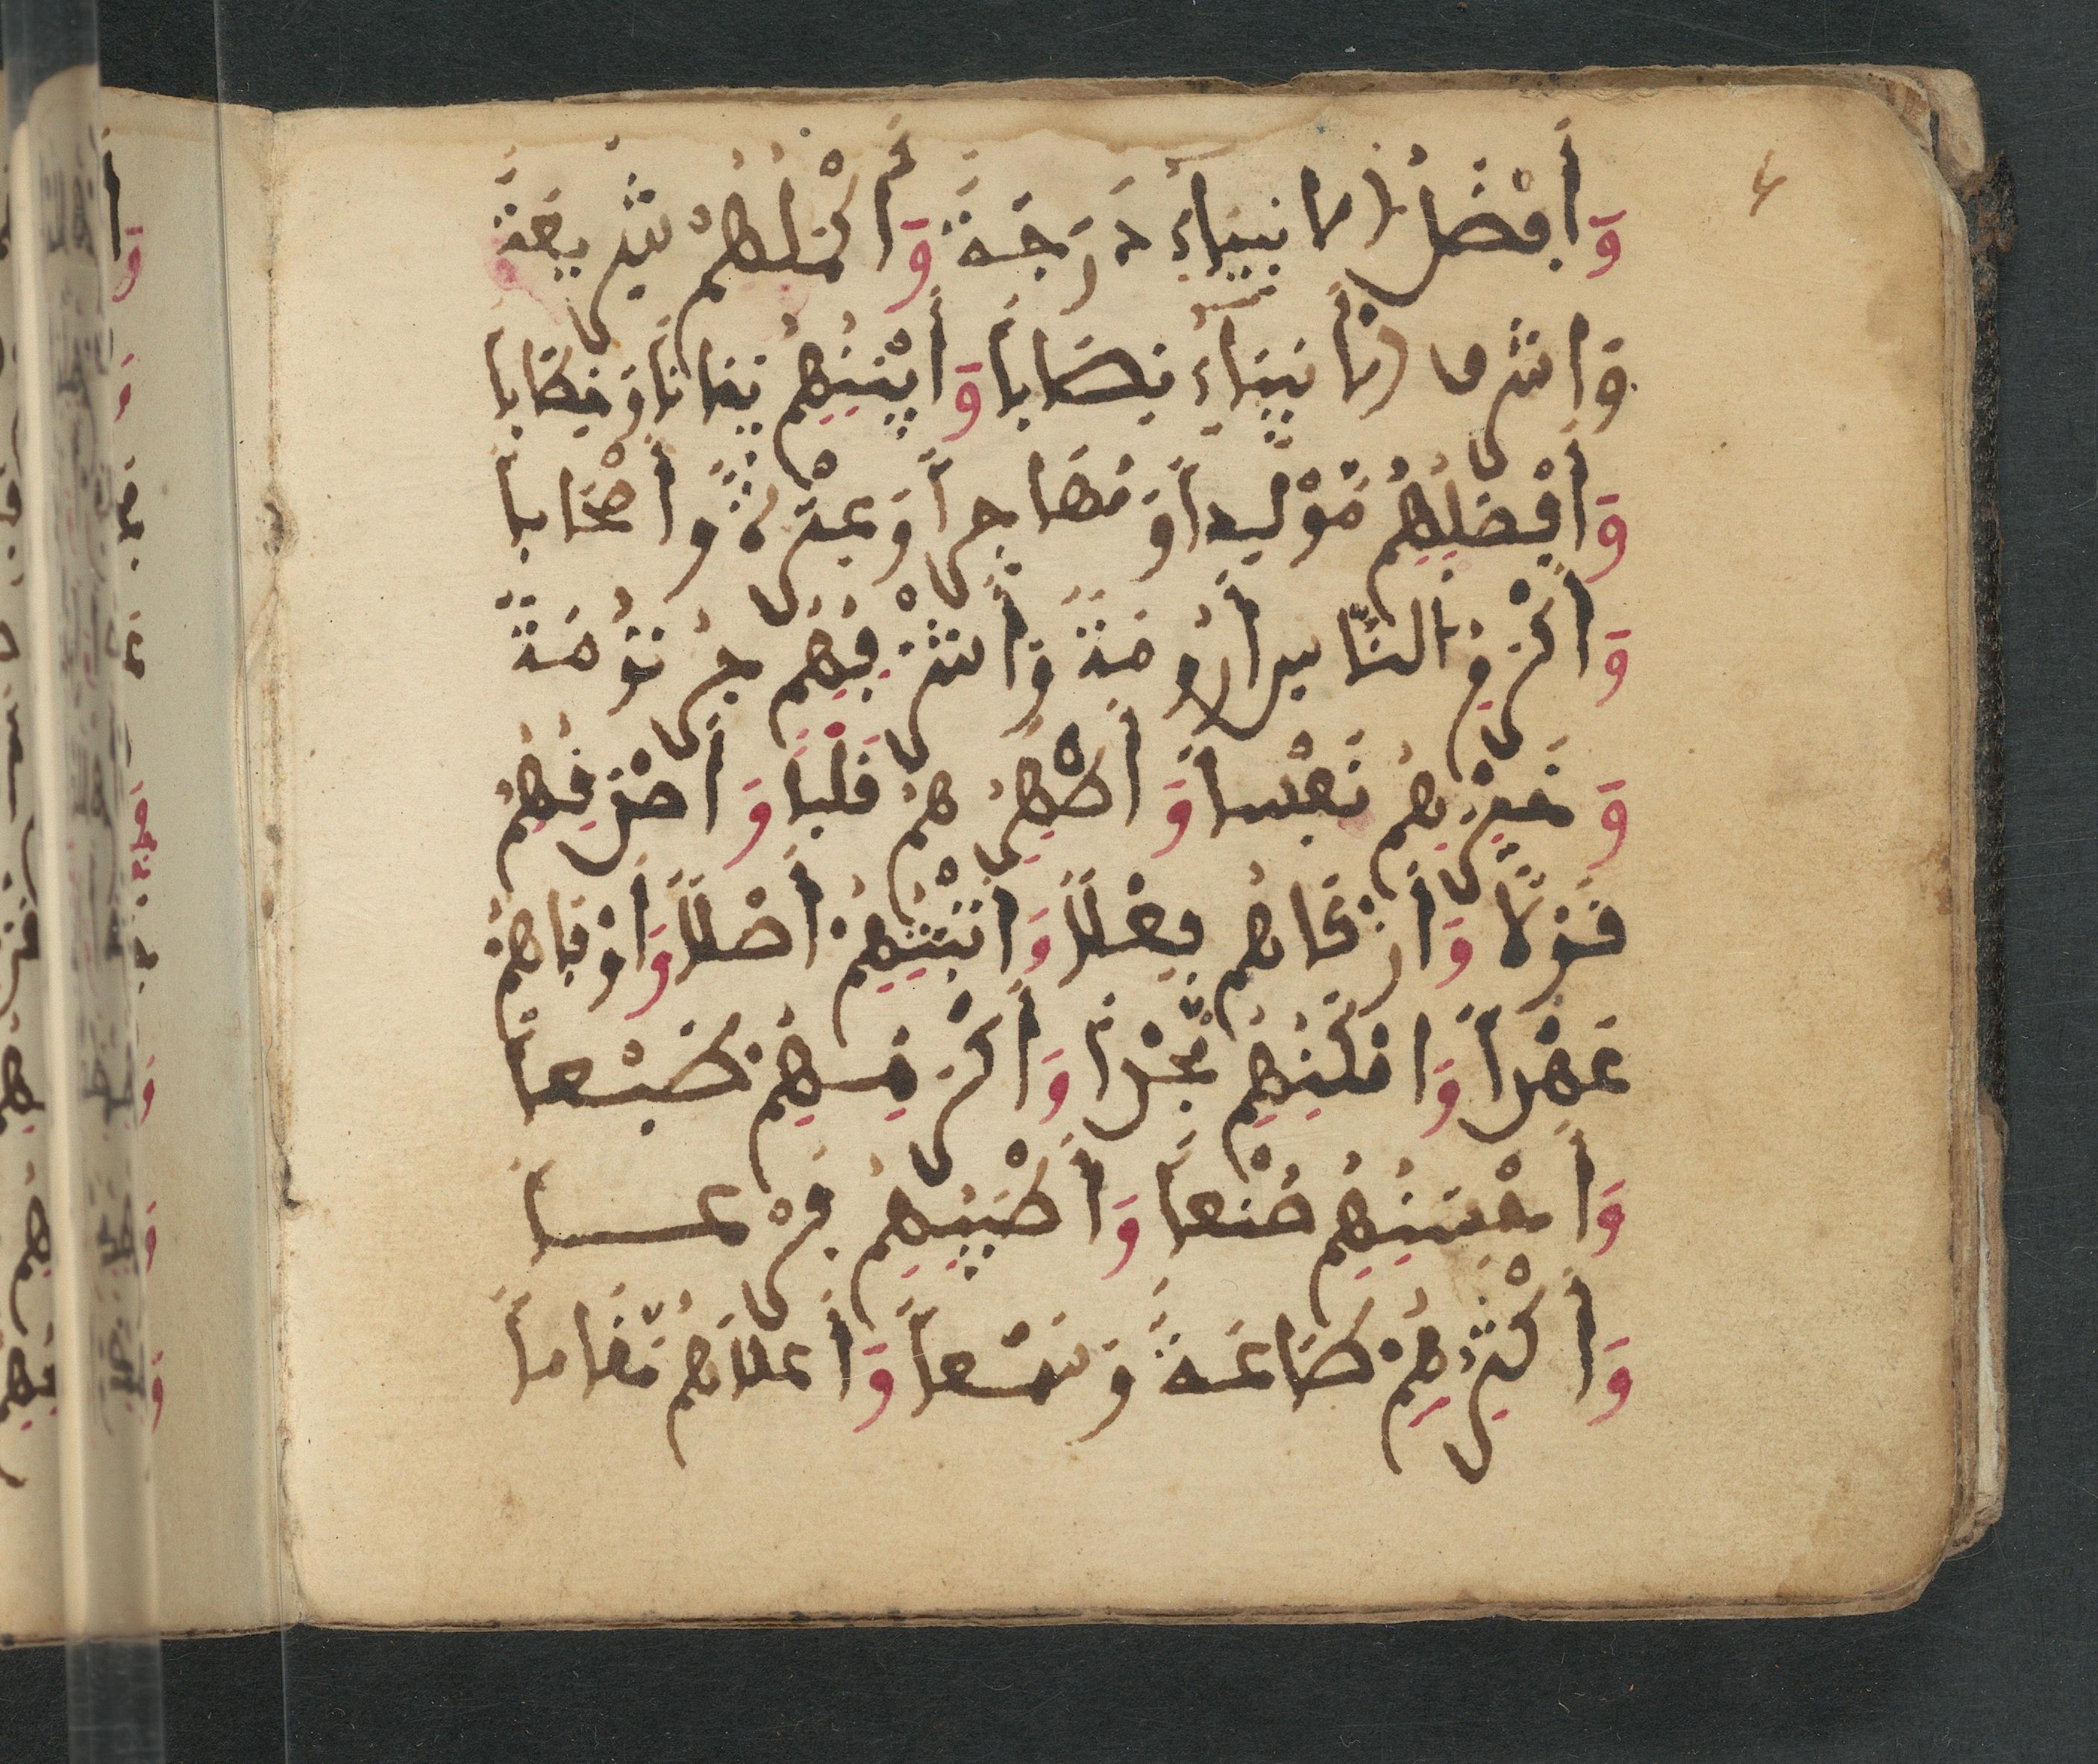 وَأَفْضَلُ الانبِيَاءِ دَرَجَةً وَأَكْمَلُهُمْ شَرِيعَةً
وَاشْرَفِ الأَنبِيَاءِ نِصَاباً وَأَبْيَنِهِمْ بَيَاناً وَخِطَاباً
وَأَفْضَلِهِمْ مَوْلِداً وَمُهَاجَراً وَعِتْرَةً وَأَصْحَاباً
وَأَكْرَمِ النَّاسِ أَرُومَةً وَأَشْرَفِهِمْ جُرْثُومَةً
وَخَيْرِهِمْ نَفْساً وَأَطْهَرِهِمْ قَلْباً وَأَصْدَقِهِمْ
قَوْلاً وَأَزْكَاهُمْ فِعْلاً وَاثْبَتِهِمْ أَصْلاً وَأَوْفَاهُمْ
عَهْداً وَامْكَنِهِمْ مَجْداً وَأَكْرَمِهِمْ طَبْعا
وَأَحْسَنِهِمْ صُنْعاً وَأَطْيَبِهِمْ فَرْعا
وَأَكْثَرِهِمْ طَاعَةً وَسَمْعاً وَأَعْلاَهُمْ مَّقَاماً